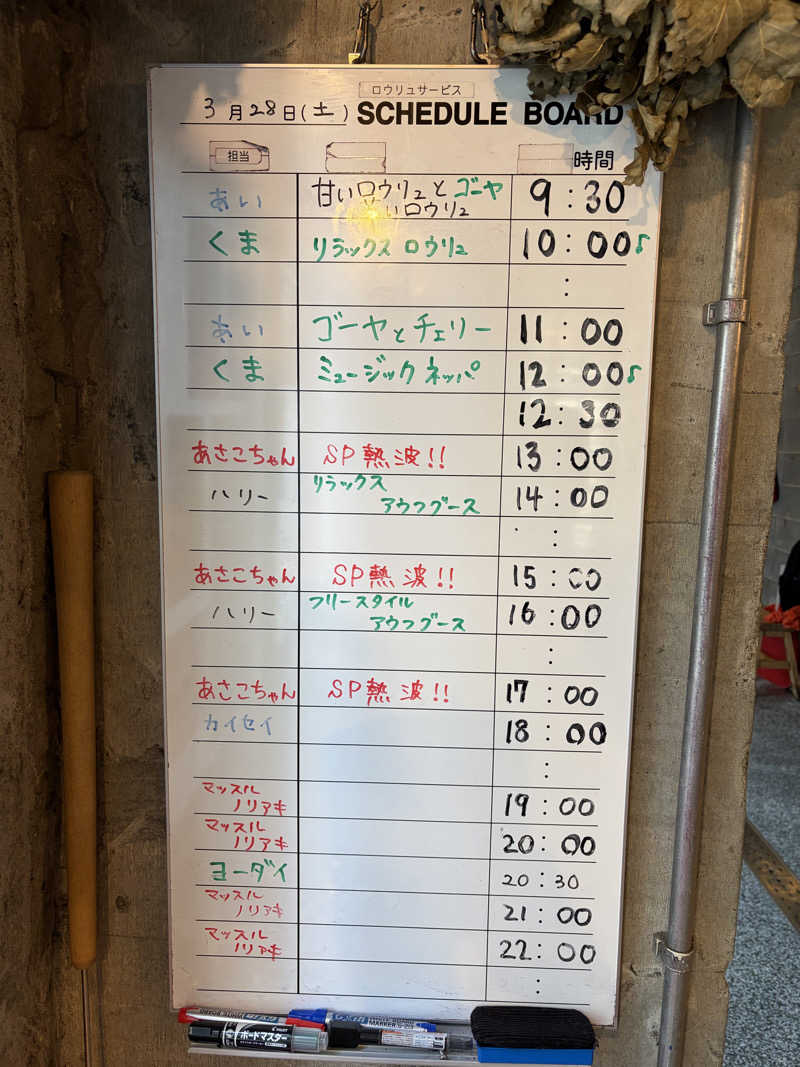 ロウリュサービス
3月28日(土) SCHEDULE BOARD
担当 時間
あい 甘いロウリュとゴーヤ 9:30
ロウリュ
くま リラックス ロウリュ 10:00♪
:
あい ゴーヤとチェリー 11:00
くま ミュージック ネッパ 12:00♪
12:30
あさこちゃん SP熱波!! 13:00
ハリー リラックス 14:00
アウフグース
:
あさこちゃん SP熱波!! 15:00
ハリー フリースタイル 16:00
アウフグース
:
あさこちゃん SP熱波!! 17:00
カイセイ 18:00
:
マッスル
ノリアキ 19:00
マッスル
ノリアキ 20:00
ヨーダイ 20:30
マッスル
ノリアキ 21:00
マッスル
ノリアキ 22:00
:
ボードマスター
MARKER